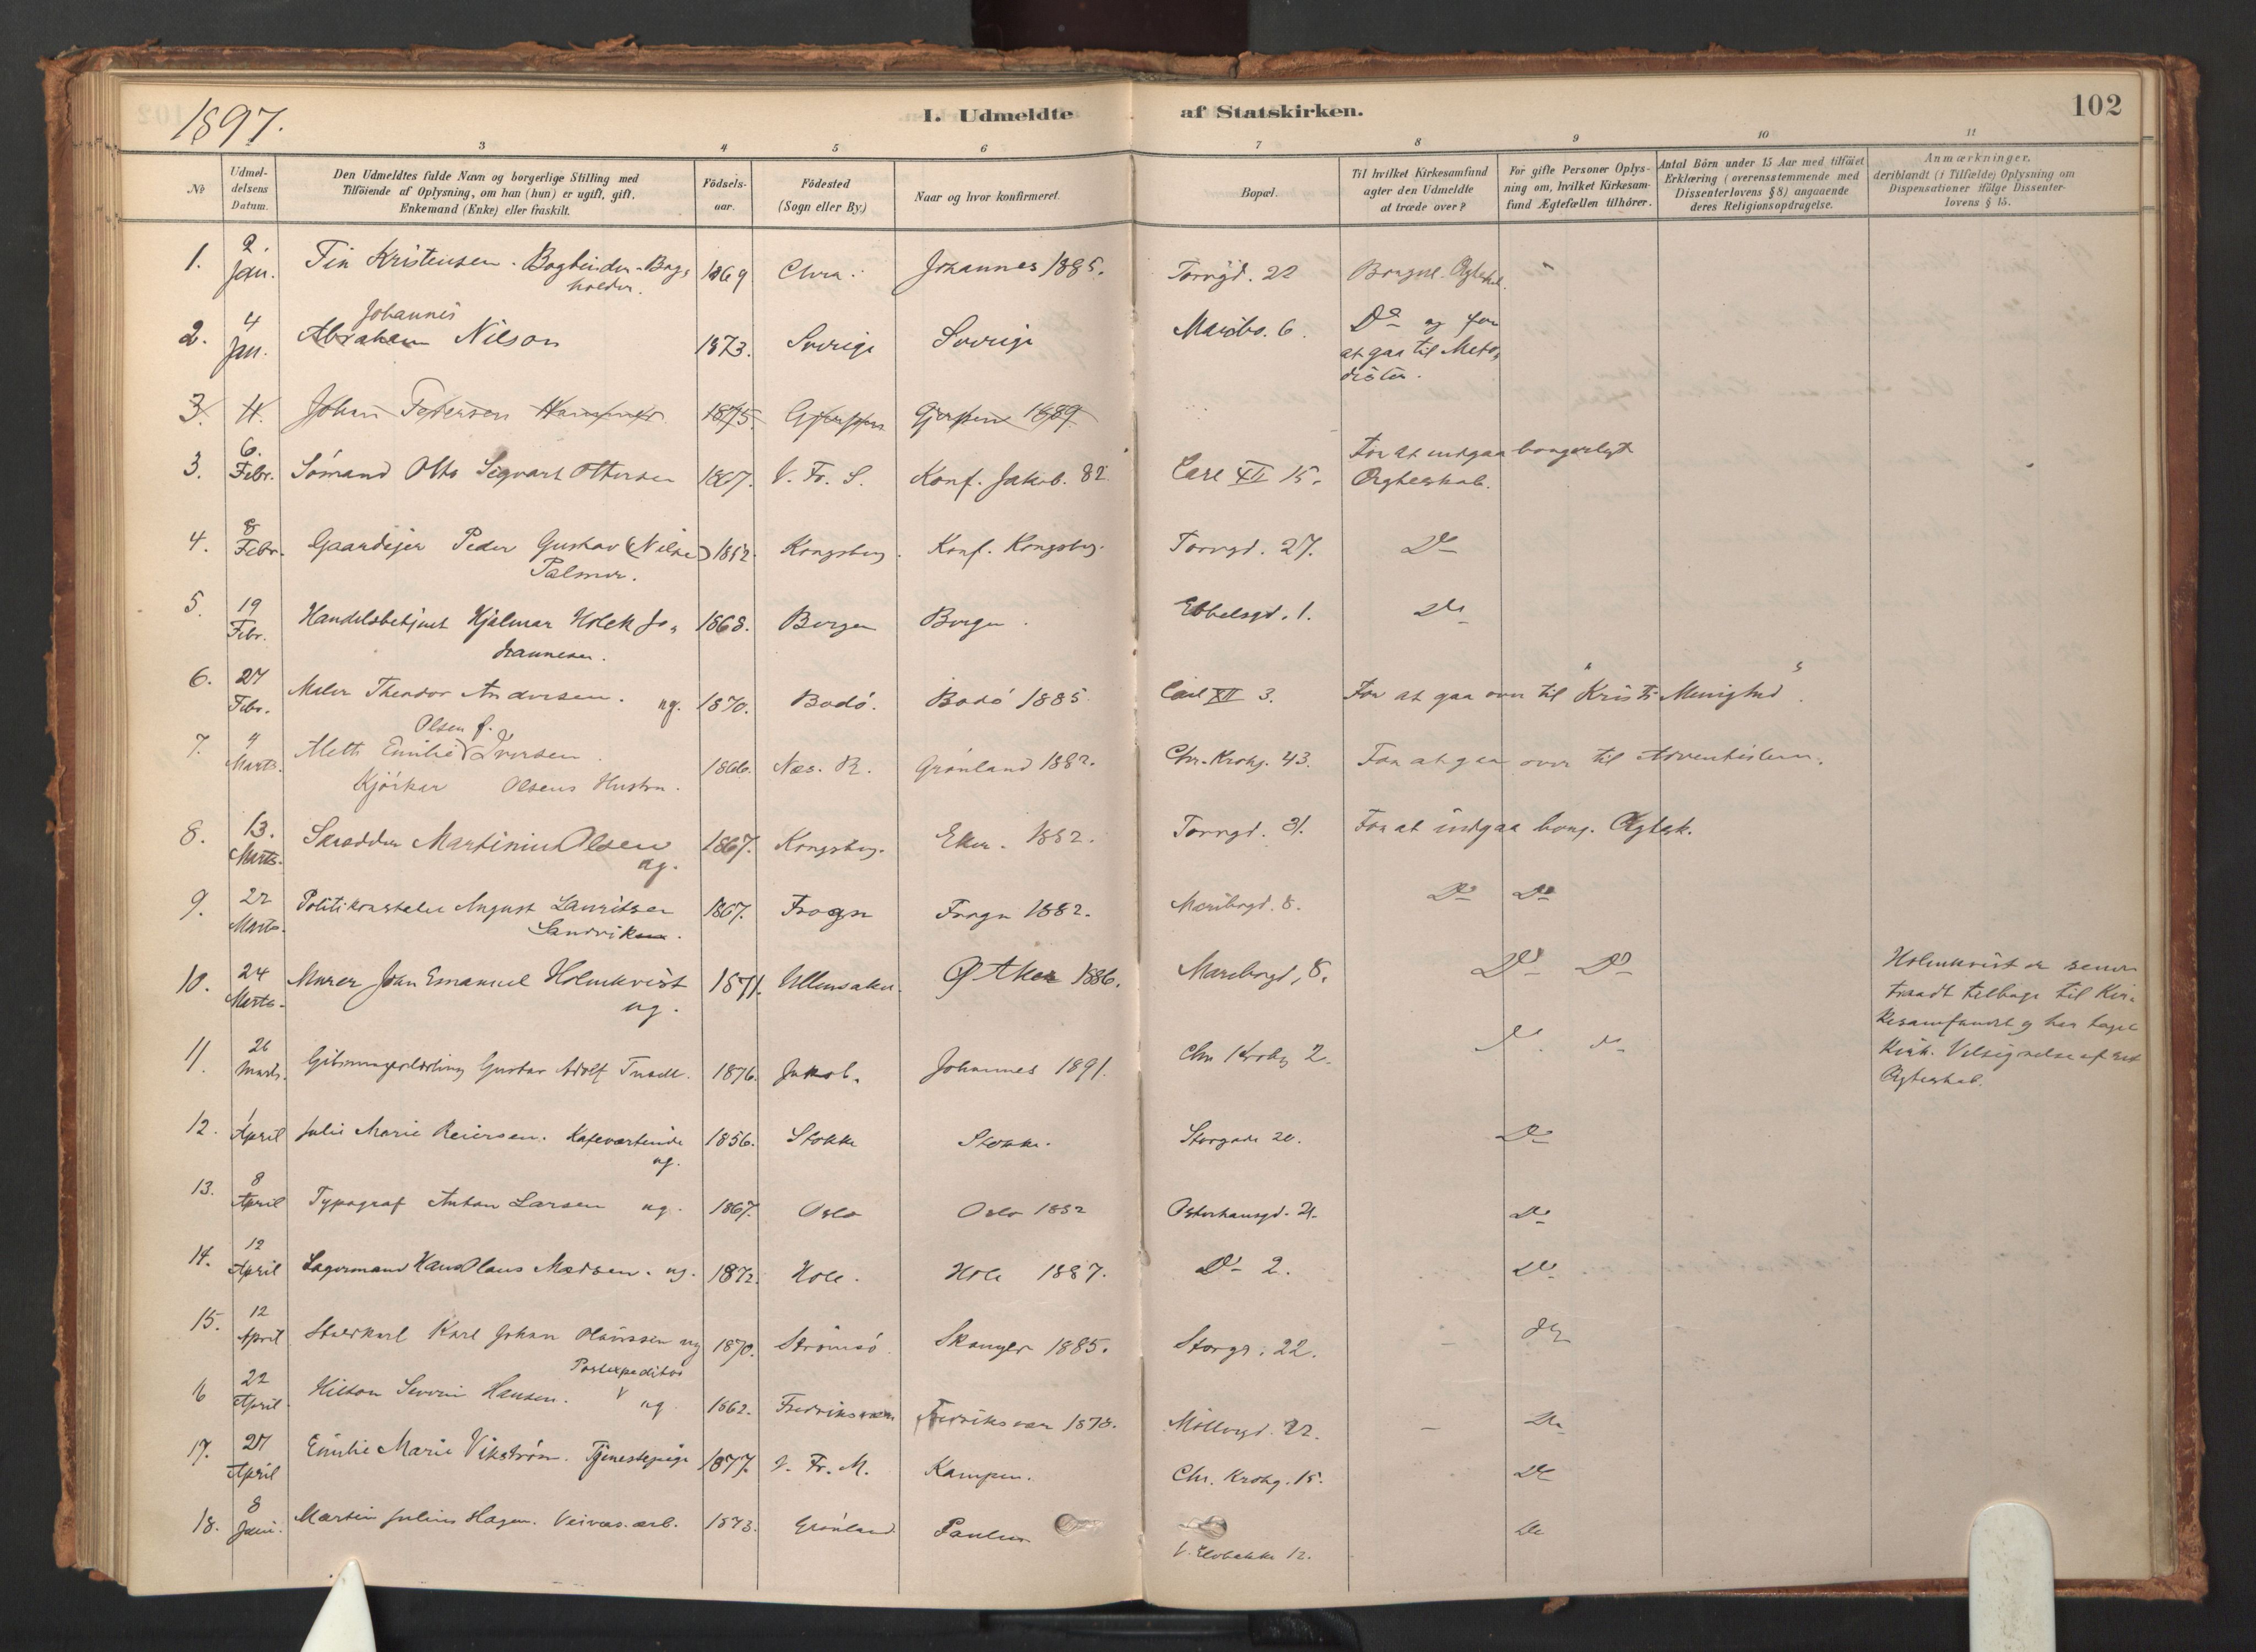 1897.
I. Udmeldte af Statskirken.
102
3 4 5 6 7 8 9 10 11
No
Udmel-
delsens
Datum.
Den Udmeldtes fulde Navn og borgerlige Stilling med
Tilföiende af Oplysning, om han (hun) er ugift, gift,
Enkemand (Enke) eller fraskilt.
Födsels-
aar.
Födested
(Sogn eller By.)
Naar og hvor konfirmeret.
Bopæl.
Til hvilket Kirkesamfund
agter den Udmeldte
at træde over?
For gifte Personer Oplys-
ning om, hvilket Kirkesam-
fund Ægtefællen tilhörer.
Antal Börn under 15 Aar med tilföiet
Erklæring (overensstemmende med
Dissenterlovens § 8) angaaende
deres Religionsopdragelse.
Anmærkninger,
deriblandt (i Tilfælde) Oplysning om
Dispensationer ifölge Dissenter-
lovens § 15.
1. 2. Jan. Fin Kristensen. Bogbinder-Bog-
holder. 1869 Chra. Johannes 1885. Torvgd. 22 Borgerl. Ægtesk.
Johannes
2. 4 Jan. Abraham Nilson 1873. Sverige Sverige Maribo. 6. Do og for
at gaa til Meto-
dister.
3. 4. Johan Pedersen 1875. Gjerpen Gjerpen 1889
3. 6. Febr. Sömand Otto Sigvart Ottersen 1867. V. Fr. S. Konf. Jakob. 82. Carl XII 15. For at indgaa borgerligt
Ægteskab.
4. 8 Febr. Gaardejer Peder Gustav (Nilsen) 1852. Kongsberg. Konf. Kongsberg. Torvgd. 27. Do
Palmer.
5. 19 Febr. Handelsbetjent Hjalmar Holck Jo- 1868. Bergen Bergen. Ebbelsgd. 1. Do
hannesen.
6. 27 Febr. Maler Theodor Andersen. ug. 1870. Bodö. Bodö 1885 Carl XII 3. For at gaa over til "Kristi Menighed".
Olsen f.
7. 4 Marts. Mette Emilie Iversen 1866. Næs. R. Grönland 1882. Chr. Krohg. 43. For at gaa over til Adventisterne.
Kjörkar Olsens Hustru.
8. 13. Marts. Skrædder Martinius Olsen ug. 1867. Kongsberg. Eker. 1882. Torvgd. 31. For at indgaa borg. Ægtesk.
9. 22 Marts. Politikonstabel August Lauritsen 1867. Frogn Frogn 1882. Maribogd. 8. Do Do
Sandviken.
10. 24 Marts. Murer Johan Emanuel Holmkvist ug. 1871. Ullensaker. Ø Aker 1886. Maribogd, 8. Do Do
Holmkvist er senere
traadt tilbage til Kir-
kesamfundet og har taget
Kirk. Velsignelse af sit
Ægteskab.
11. 26 Marts. Gustav Adolf 1876. Jakob. Johannes 1891. Chr Krohg 2. Do Do
12. 1 April Julie Marie Reiersen. Kafeværtinde ug. 1856. Stokke Stokke. Storgade 20. Do
13. 8 April Typograf Anton Larsen ug. 1867. Oslo Oslo 1882 Osterhausgd. 21. Do
14. 12 April Lagermand Hans Olaus Madsen. ug. 1872. Hole. Hole 1887. Do 2. Do
15. 12 April Karl Johan Olaussen ug 1870. Strömsö. Skanger 1885. Storgd. 22. Do
Postexpeditør
16 22 April. Hilton Severin Hansen. ug. 1862. Fredriksværn Fredriksværn 1878. Möllergd. 22. Do
17. 27 April Emilie Marie Vikström. Tjenestepige 1877. V. Fr. M. Kampen. Chr. Krohg. 15. Do
18. 8 Juni. Martin Julius Hagen. Veivæs. arb. 1873. Grönland Paulus V. Elvebakke 12. Do